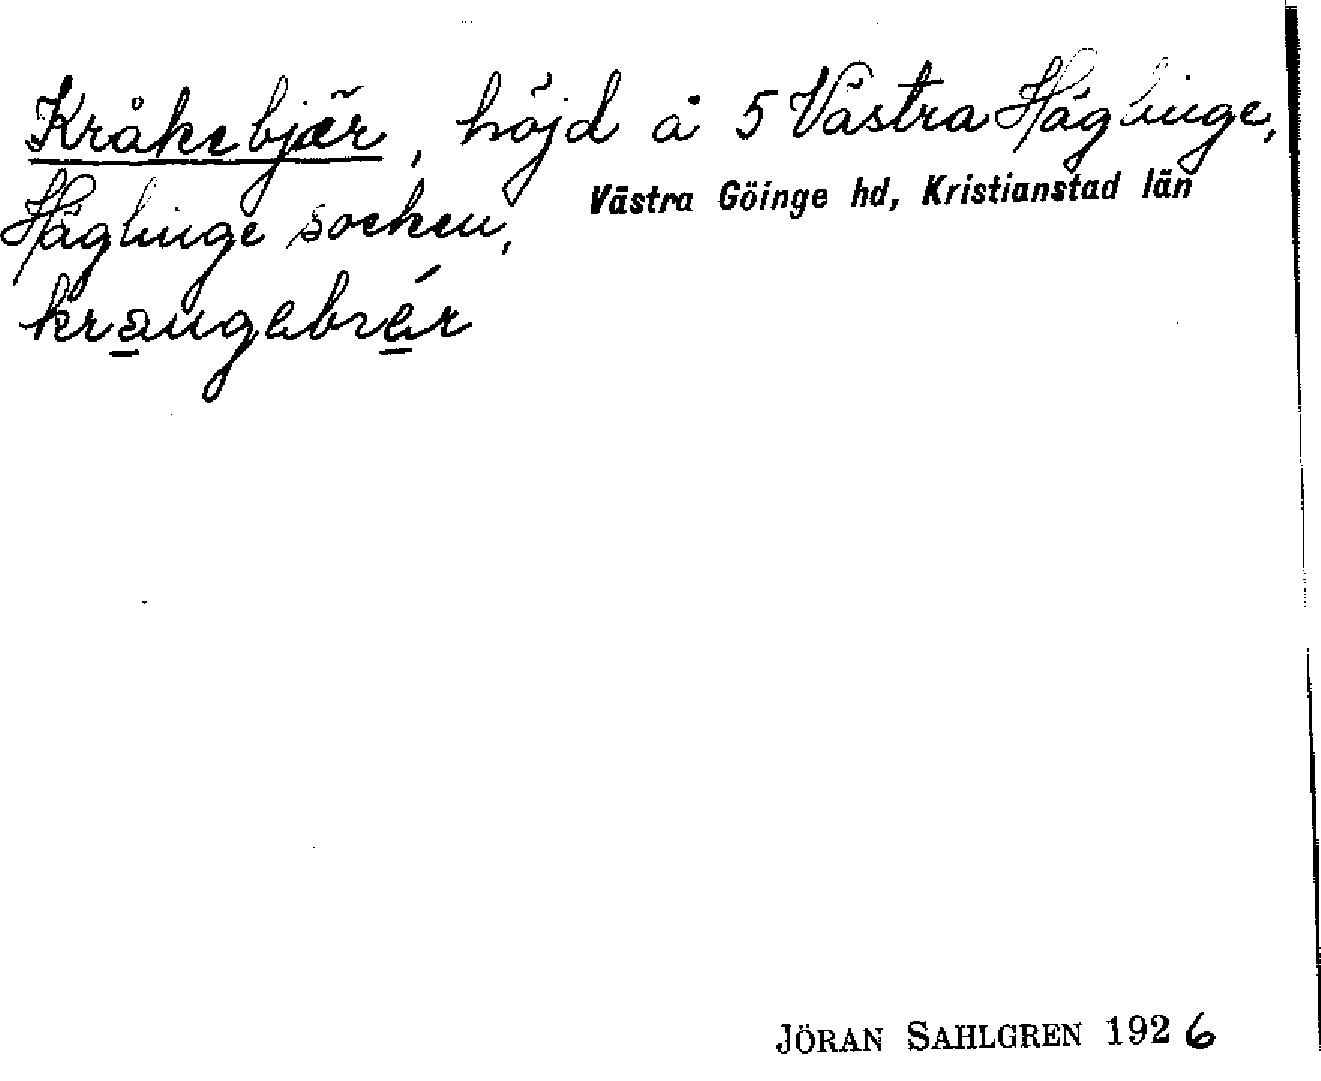 Kråkebjär, höjd å 5 Västra Häglinge,
Häglinge socken, Västra Göinge hd, Kristianstad län
JÖRAN SAHLGREN 1926